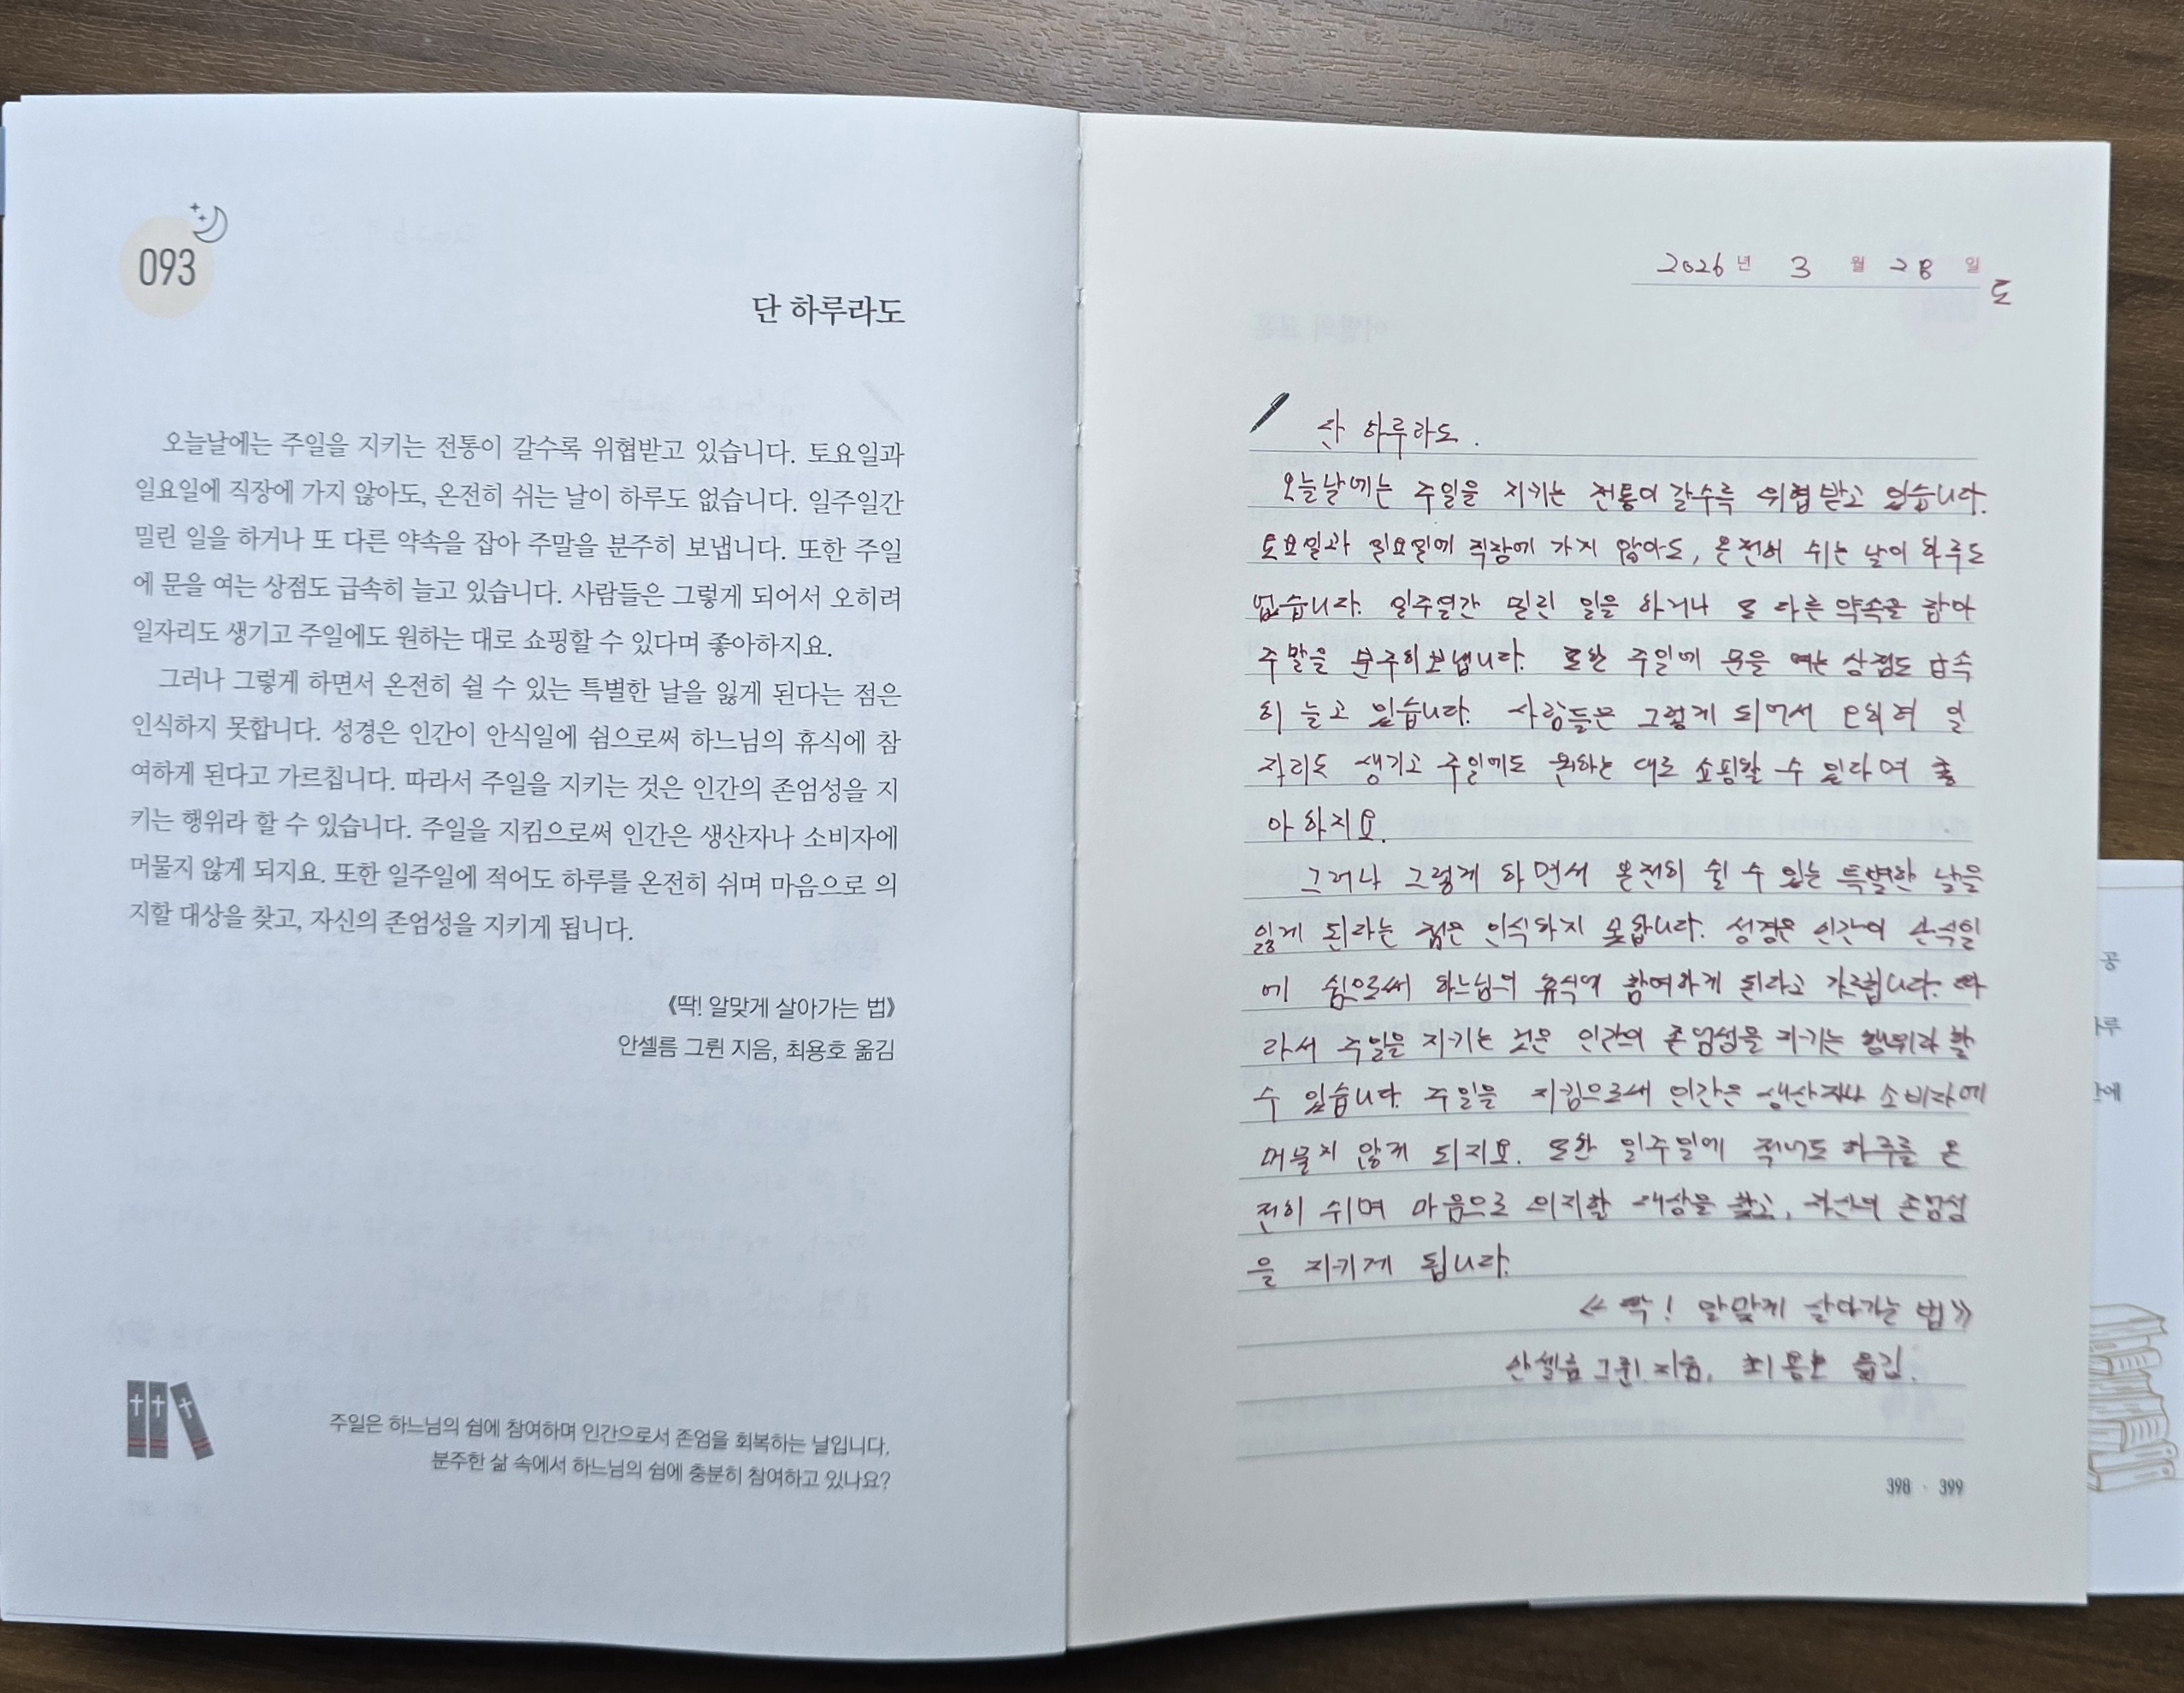 093
단 하루라도
오늘날에는 주일을 지키는 전통이 갈수록 위협받고 있습니다. 토요일과
일요일에 직장에 가지 않아도, 온전히 쉬는 날이 하루도 없습니다. 일주일간
밀린 일을 하거나 또 다른 약속을 잡아 주말을 분주히 보냅니다. 또한 주일
에 문을 여는 상점도 급속히 늘고 있습니다. 사람들은 그렇게 되어서 오히려
일자리도 생기고 주일에도 원하는 대로 쇼핑할 수 있다며 좋아하지요.
그러나 그렇게 하면서 온전히 쉴 수 있는 특별한 날을 잃게 된다는 점은
인식하지 못합니다. 성경은 인간이 안식일에 쉼으로써 하느님의 휴식에 참
여하게 된다고 가르칩니다. 따라서 주일을 지키는 것은 인간의 존엄성을 지
키는 행위라 할 수 있습니다. 주일을 지킴으로써 인간은 생산자나 소비자에
머물지 않게 되지요. 또한 일주일에 적어도 하루를 온전히 쉬며 마음으로 의
지할 대상을 찾고, 자신의 존엄성을 지키게 됩니다.
《딱! 알맞게 살아가는 법》
안셀름 그륀 지음, 최용호 옮김
주일은 하느님의 쉼에 참여하며 인간으로서 존엄을 회복하는 날입니다.
분주한 삶 속에서 하느님의 쉼에 충분히 참여하고 있나요?
2026 년 3 월 28 일
토
단 하루라도.
오늘날에는 주일을 지키는 전통이 갈수록 위협받고 있습니다.
토요일과 일요일에 직장에 가지 않아도, 온전히 쉬는 날이 하루도
없습니다. 일주일간 밀린 일을 하거나 또 다른 약속을 잡아
주말을 분주히 보냅니다. 또한 주일에 문을 여는 상점도 급속
히 늘고 있습니다. 사람들은 그렇게 되어서 오히려 일
자리도 생기고 주일에도 원하는 대로 쇼핑할 수 있다며 좋
아하지요.
그러나 그렇게 하면서 온전히 쉴 수 있는 특별한 날을
잃게 된다는 점은 인식하지 못합니다. 성경은 인간이 안식일
에 쉼으로써 하느님의 휴식에 참여하게 된다고 가르칩니다. 따
라서 주일을 지키는 것은 인간의 존엄성을 지키는 행위라 할
수 있습니다. 주일을 지킴으로써 인간은 생산자나 소비자에
머물지 않게 되지요. 또한 일주일에 적어도 하루를 온
전히 쉬며 마음으로 의지할 대상을 찾고, 자신의 존엄성
을 지키게 됩니다.
《딱! 알맞게 살아가는 법》
안셀름 그륀 지음, 최용호 옮김.
398 · 399